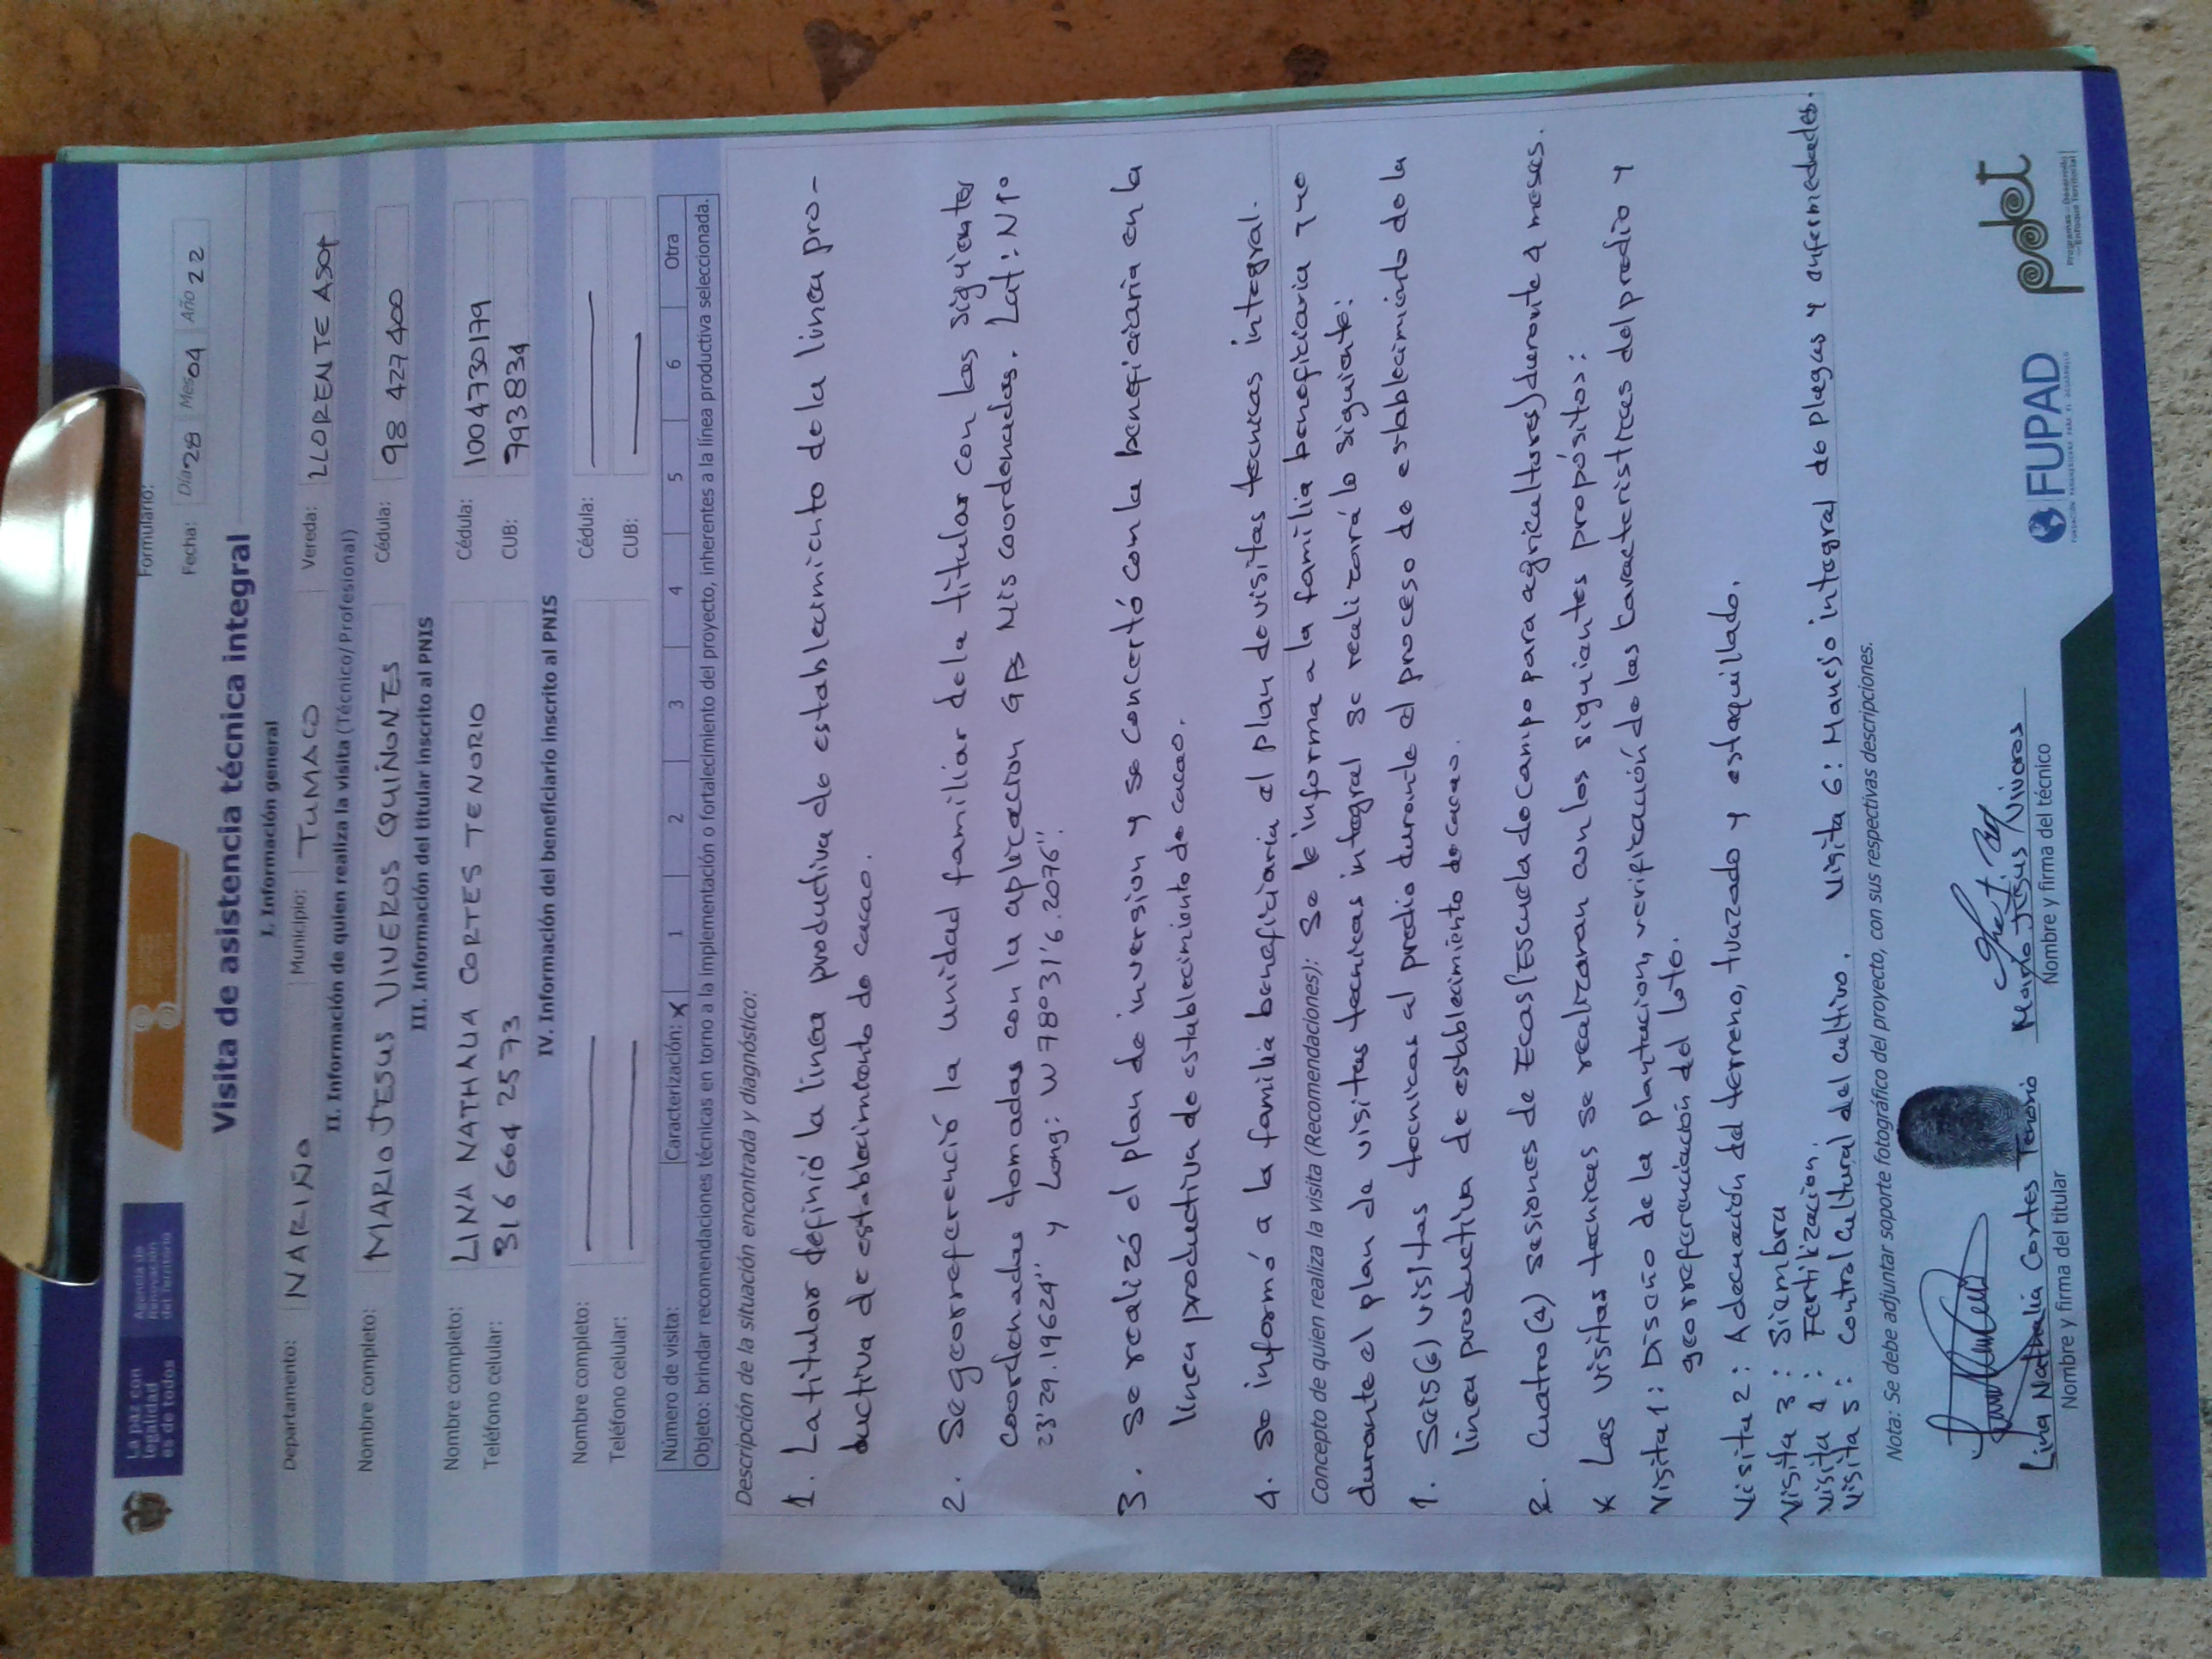 La paz con
legalidad
es de todos
Agencia de
Renovación
del Territorio
Formulario:
Visita de asistencia técnica integral
Fecha: Día 28 Mes 04 Año 22
I. Información general
Departamento: NARIÑO Municipio: TUMACO Vereda: LLORENTE ASOT
II. Información de quien realiza la visita (Técnico/Profesional)
Nombre completo: MARIO JESUS VIVEROS QUIÑONES Cédula: 98 427 400
III. Información del titular inscrito al PNIS
Nombre completo: LINA NATHALIA CORTES TENORIO Cédula: 1004730179
Teléfono celular: 316 664 2573 CUB: 993834
IV. Información del beneficiario inscrito al PNIS
Nombre completo: Cédula:
Teléfono celular: CUB:
Número de visita: Caracterización: X 1 2 3 4 5 6 Otra
Objeto: brindar recomendaciones técnicas en torno a la implementación o fortalecimiento del proyecto, inherentes a la línea productiva seleccionada.
Descripción de la situación encontrada y diagnóstico:
1. La titular definió la linea productiva de establecimiento de la linea pro-
ductiva de establecimiento de cacao.
2. Se georreferenció la unidad familiar de la titular con las siguientes
coordenadas tomadas con la aplicacion GPS Mis coordenadas. Lat: N1°
23'29.19624" y Long: W 78°31'6.2076".
3. Se realizó el plan de inversion y se concertó con la beneficiaria en la
linea productiva de establecimiento de cacao.
4. Se informó a la familia beneficiaria el plan de visitas tecnicas integral.
Concepto de quien realiza la visita (Recomendaciones): Se le informa a la familia beneficiaria que
durante el plan de visitas tecnicas integral se realizará lo siguiente:
1. Seis(6) visitas tecnicas al predio durante el proceso de establecimiento de la
linea productiva de establecimiento de cacao.
2. Cuatro(4) sesiones de Ecas(Escuela de campo para agricultures) durante 4 meses.
* Las visitas tecnicas se realizaran con los siguientes propósitos:
Visita 1: Diseño de la plantacion, verificación de las caracteristicas del predio y
georreferenciación del lote.
Visita 2: Adecuación del terreno, trazado y estaquillado.
Visita 3: Siembra
Visita 4: Fertilizacion.
Visita 5: Control cultural del cultivo. Visita 6: Manejo integral de plagas y enfermedades.
Nota: Se debe adjuntar soporte fotográfico del proyecto, con sus respectivas descripciones.
Lina Nathalia Cortes Tenorio Mario Jesus Viveros
Nombre y firma del titular Nombre y firma del técnico
FUPAD
pdet
Programas de Desarrollo
con Enfoque Territorial